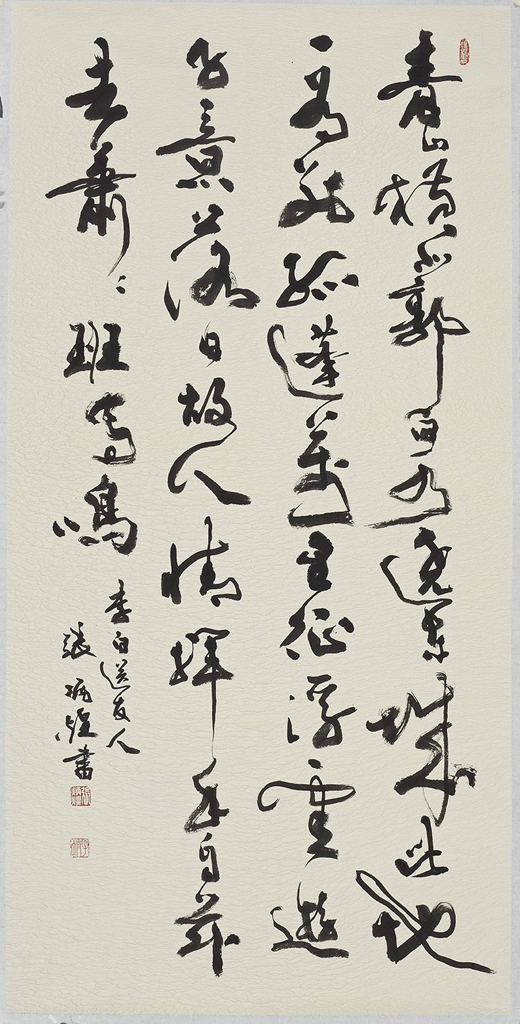 青山橫北郭白水遶東城此地
一為別孤蓬萬里征浮雲遊
子意落日故人情揮手自茲
去蕭々班馬鳴
李白送友人
張炳煌書